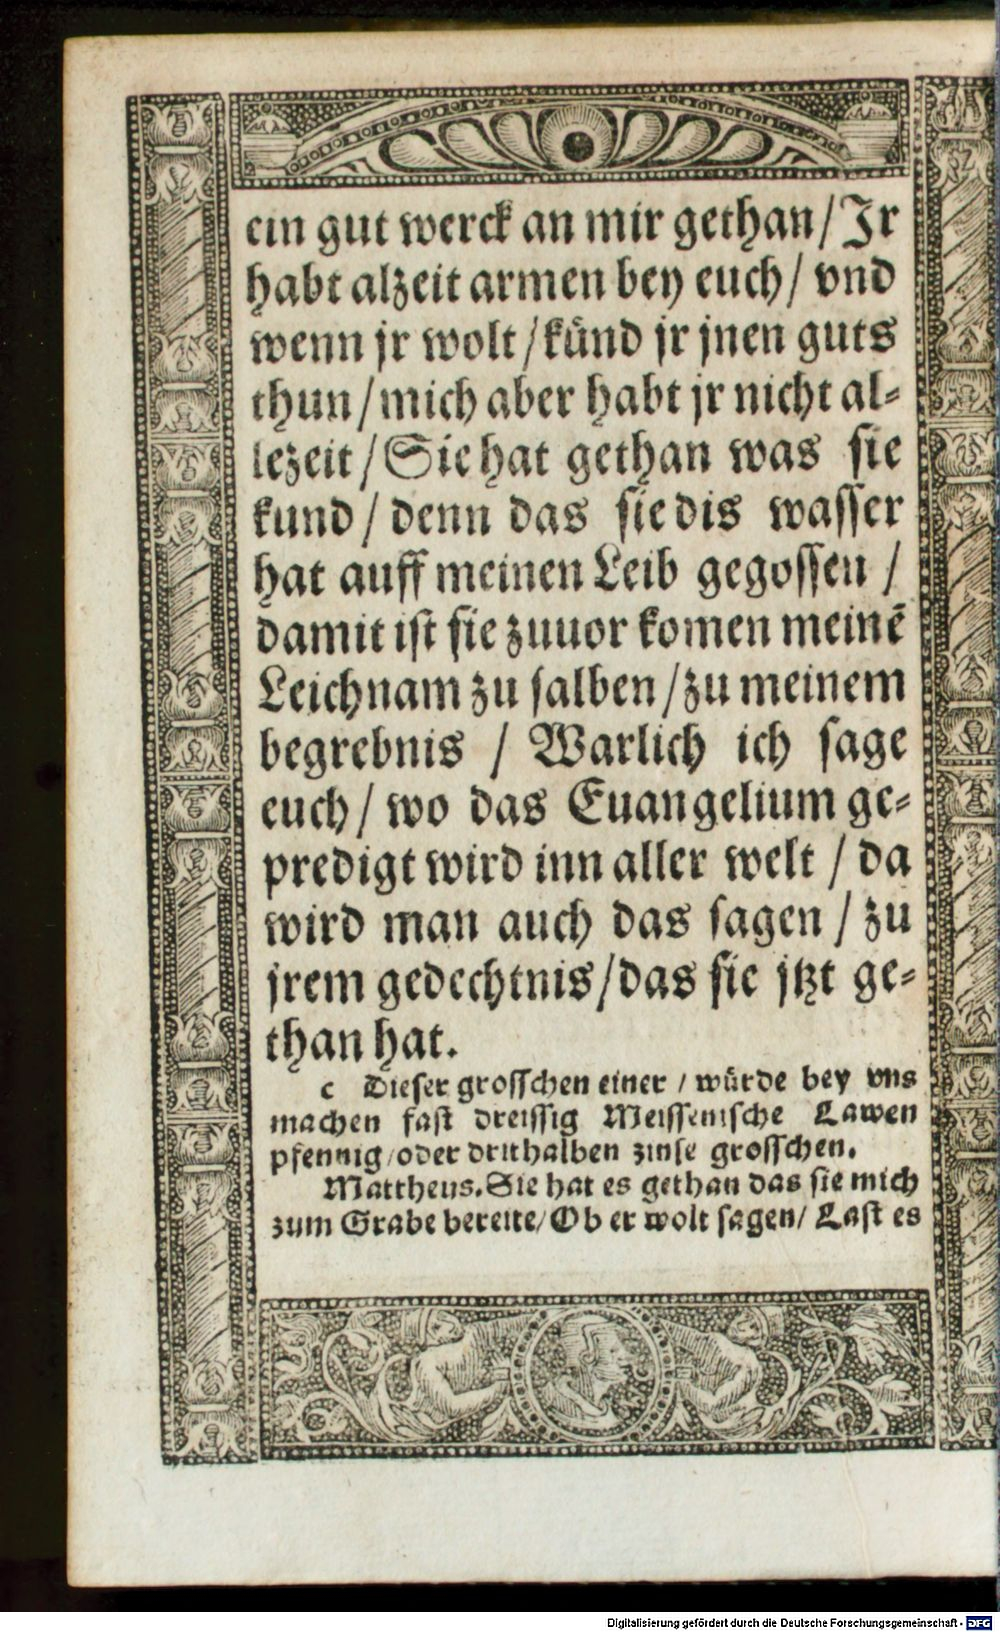 ein gut werck an mir gethan/ Jr
habt alzeit armen bey euch/ vnd
wenn jr wolt/ künd jr jnen guts
thun/ mich aber habt jr nicht al⸗
lezeit/ Sie hat gethan was sie
kund/ denn das sie dis wasser
hat auff meinen Leib gegossen /
damit ist sie zuuor komen meinē
Leichnam zu salben/ zu meinem
begrebnis / Warlich ich sage
euch/ wo das Euangelium ge⸗
predigt wird inn aller welt / da
wird man auch das sagen / zu
jrem gedechtnis/ das sie jtzt ge⸗
than hat.
c Dieser grosschen einer / würde bey vns
machen fast dreissig Meissenische Lawen
pfennig/ oder drithalben zinse grosschen.
Mattheus. Sie hat es gethan das sie mich
zum Grabe bereite/ Ob er wolt sagen/ Last es
Digitalisierung gefördert durch die Deutsche Forschungsgemeinschaft - DFG